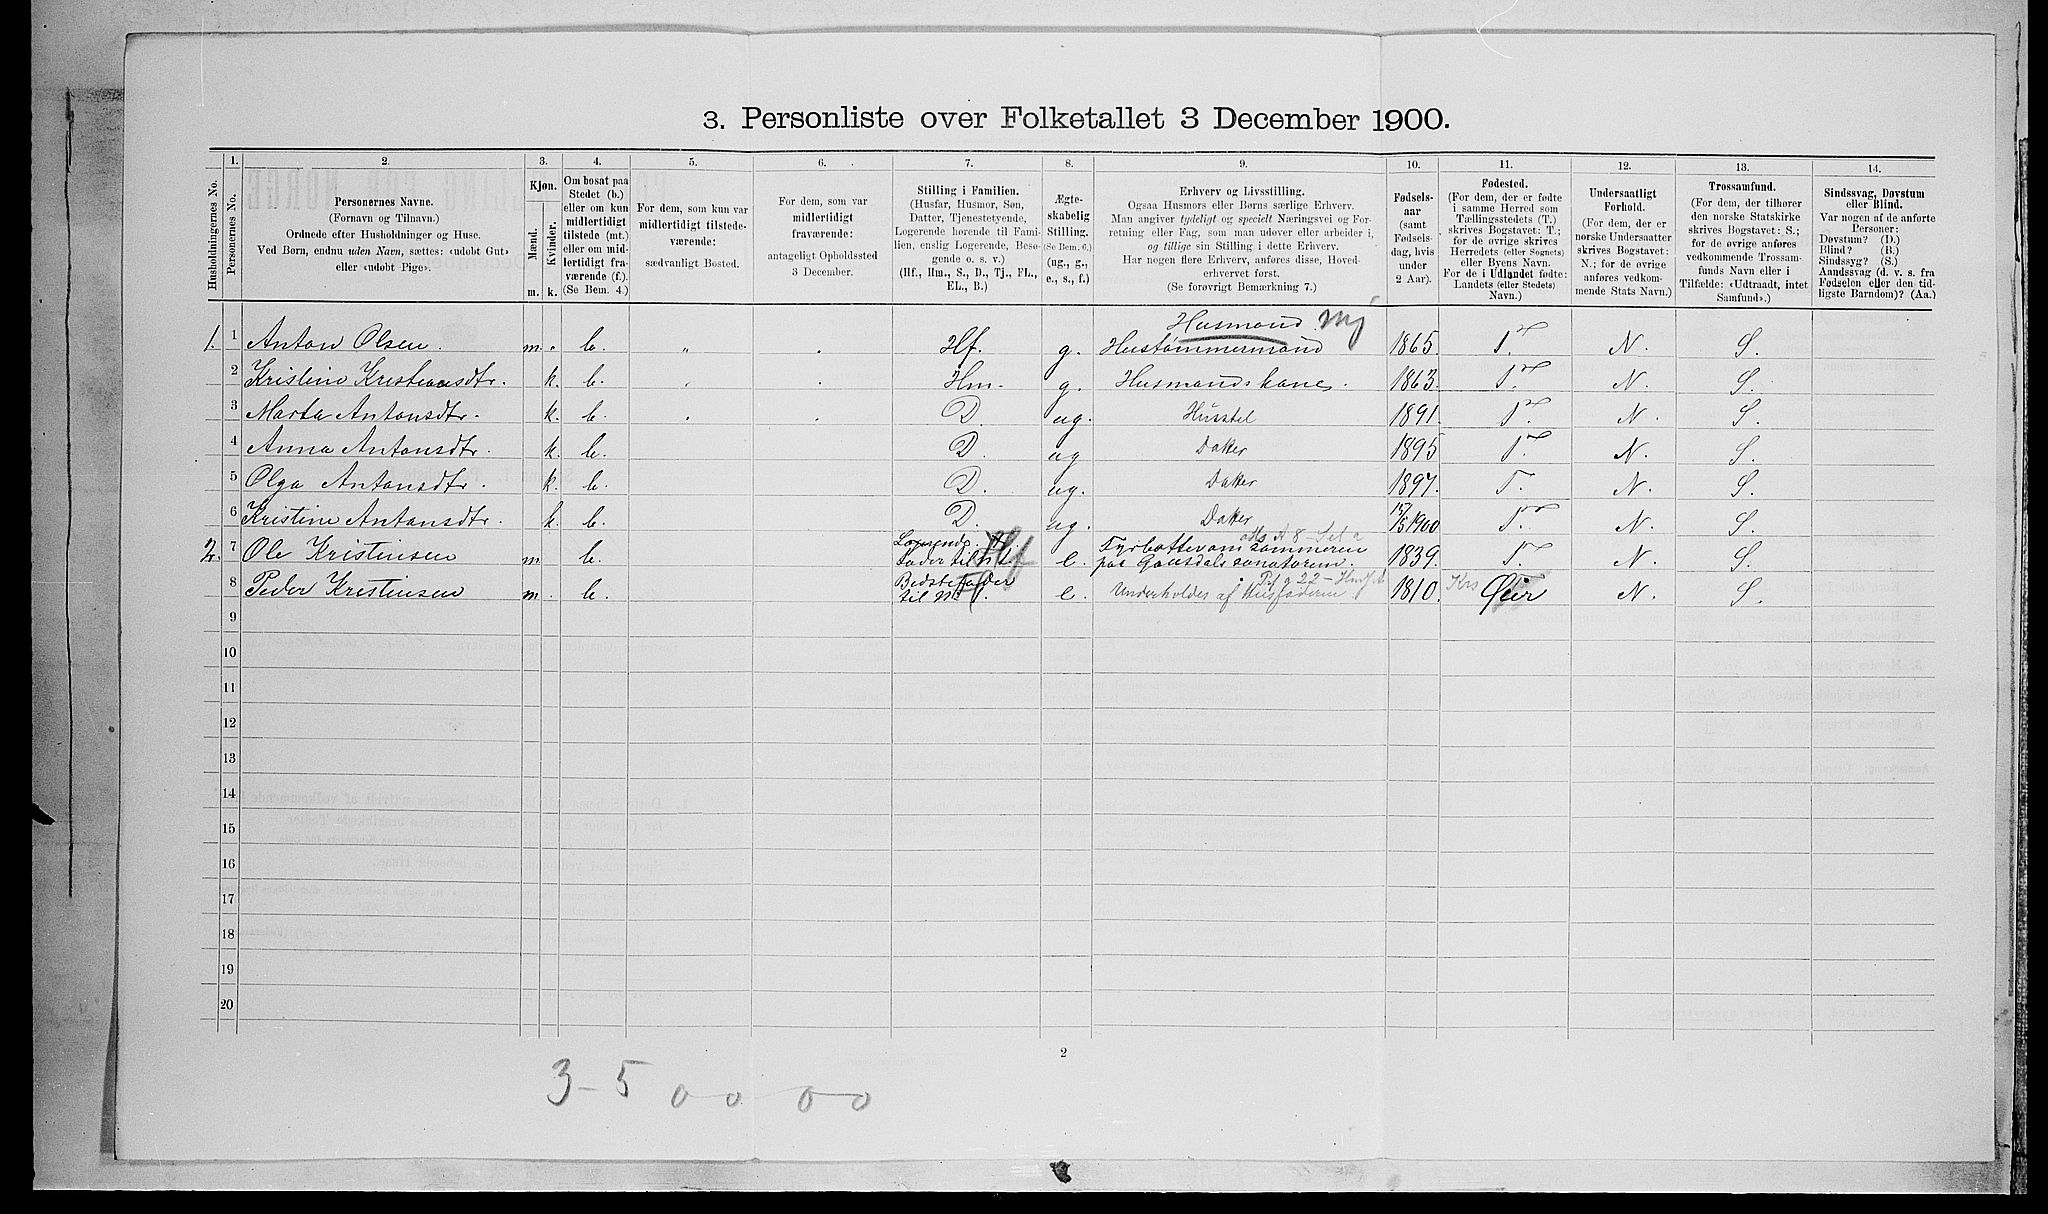 3. Personliste over Folketallet 3 December 1900.
1. 2. 3. 4. 5. 6. 7. 8. 9. 10. 11. 12. 13. 14.
Husholdningernes No.
Personernes No.
Personernes Navne.
(Fornavn og Tilnavn.)
Ordnede efter Husholdninger og Huse.
Ved Børn, endnu uden Navn, sættes: «udobt Gut»
eller «udobt Pige».
Kjøn.
Mænd.
Kvinder.
m. k.
Om bosat paa
Stedet (b.)
eller om kun
midlertidigt
tilstede (mt.)
eller om mid-
lertidigt fra-
værende (f.).
(Se Bem. 4.)
For dem, som kun var
midlertidigt tilstede-
værende:
sædvanligt Bosted.
For dem, som var
midlertidigt
fraværende:
antageligt Opholdssted
3 December.
Stilling i Familien.
(Husfar, Husmor, Søn,
Datter, Tjenestetyende,
Logerende hørende til Fami-
lien, enslig Logerende, Besø-
gende o. s. v.)
(Hf., Hm., S., D., Tj., FL.,
EL., B.)
Ægte-
skabelig
Stilling.
(Se Bem. 6.)
(ug., g.,
e., s., f.)
Erhverv og Livsstilling.
Ogsaa Husmors eller Børns særlige Erhverv.
Man angiver tydeligt og specielt Næringsvei og For-
retning eller Fag, som man udøver eller arbeider i,
og tillige sin Stilling i dette Erhverv.
Har nogen flere Erhverv, anføres disse, Hoved-
erhvervet først.
(Se forøvrigt Bemærkning 7.)
Fødsels-
aar
(samt
Fødsels-
dag, hvis
under
2 Aar).
Fødested.
(For dem, der er fødte
i samme Herred som
Tællingsstedets (T.)
skrives Bogstavet: T.;
for de øvrige skrives
Herredets (eller Sognets)
eller Byens Navn.
For de i Udlandet fødte:
Landets (eller Stedets)
Navn.)
Undersaatligt
Forhold.
(For dem, der er
norske Undersaatter
skrives Bogstavet:
N.; for de øvrige
anføres vedkom-
mende Stats Navn.)
Trossamfund.
(For dem, der tilhører
den norske Statskirke
skrives Bogstavet: S.;
for de øvrige anføres
vedkommende Trossam-
funds Navn eller i
Tilfælde: «Udtraadt, intet
Samfund».)
Sindssvag, Døvstum
eller Blind.
Var nogen af de anførte
Personer:
Døvstum? (D.)
Blind? (B.)
Sindssyg? (S.)
Aandssvag (d. v. s. fra
Fødselen eller den tid-
ligste Barndom)? (Aa.)
Husmand
1. 1 Anton Olsen. m. b. Hf. g. Hustømmermand 1865. T. N. S.
2 Kristine Kristiansdtr. k. b. Hm. g. Husmandskone. 1863. T. N. S.
3 Marta Antonsdtr. k. b. D. ug. Husstel 1891. T. N. S.
4 Anna Antonsdtr. k. b. D. ug Datter 1895 T. N. S.
5 Olga Antonsdtr. k. b. D. ug. Datter 1897. T. N. S.
6 Kristine Antonsdtr. k. b. D. ug. Datter 1900 T. N. S.
Logerende.
2. 7 Ole Kristensen m. b. Fader til e. Fyrbøtter om sommeren
paa Gausdals sanatorium. 1839. T. N. S.
8 Peder Kristensen m. b. Bedstefader
til e. Underholdes af Husfaderen 1810. Øier N. S.
9
10
11
12
13
14
15
16
17
18
19
20
2
3-5 0-0 0-0